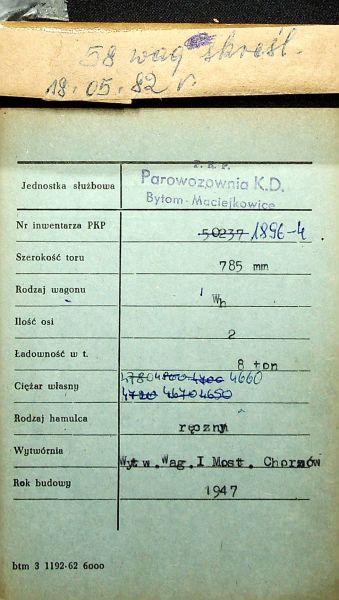 58 wag skreśl.
18.05.82 r.
P. K. P.
Jednostka służbowa Parowozownia K.D.
Bytom-Maciejkowice
Nr inwentarza PKP 50237 1896-4
Szerokość toru 785 mm
Rodzaj wagonu Wh
Ilość osi 2
Ładowność w t. 8 ton
4780 4860 4700 4660
Ciężar własny 4720 4670 4650
Rodzaj hamulca ręczny
Wytwórnia Wytw. Wag. I Most. Chorzów
Rok budowy 1947
btm 3 1192-62 6000